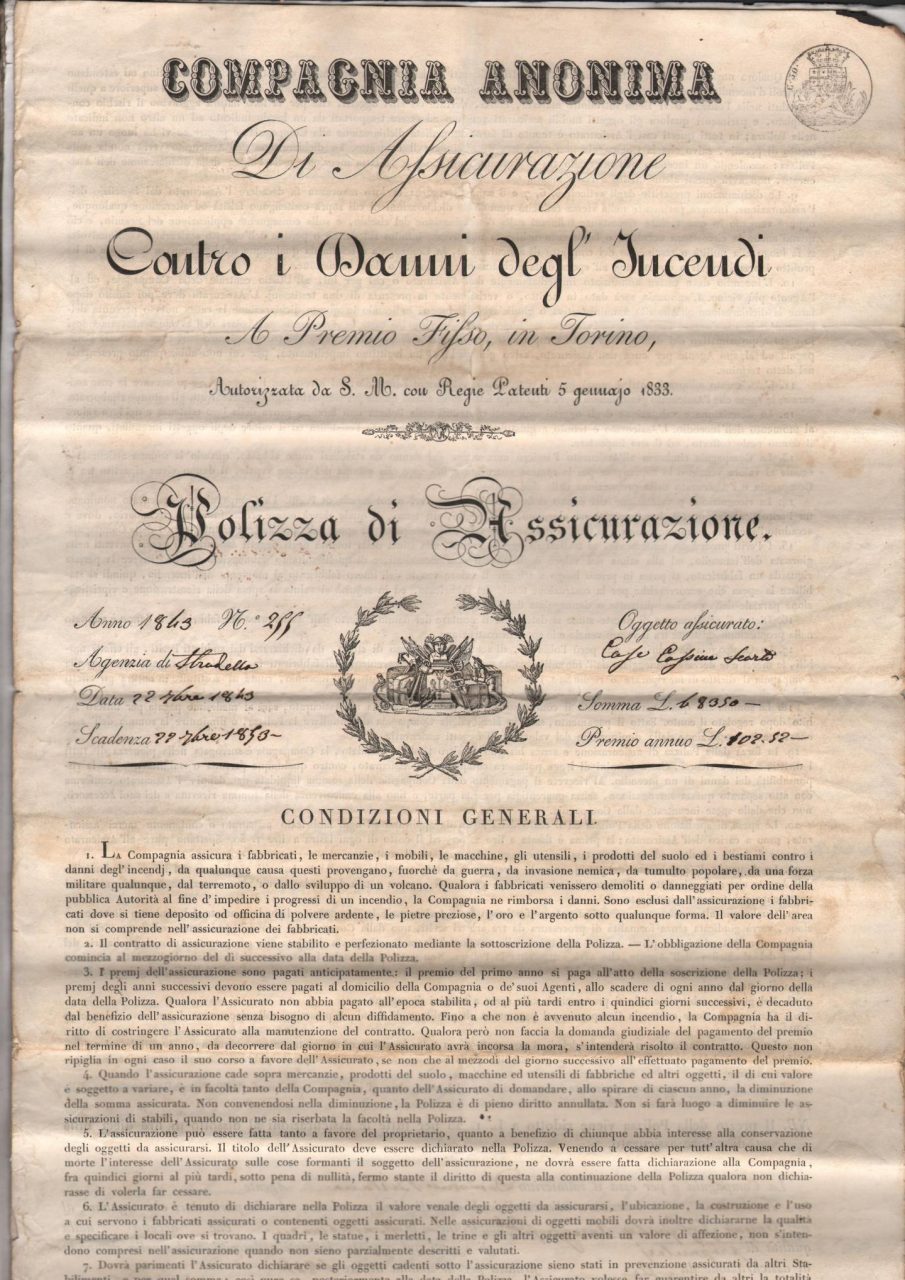 COMPAGNIA ANONIMA
Di Assicurazione
Contro i Danni degl' Incendi
A Premio Fisso, in Torino,
Autorizzata da S. M. con Regie Patenti 5 gennajo 1833.
Polizza di Assicurazione.
Anno 1843 N.º 255
Agenzia di Stradella
Data 22 7bre 1843
Scadenza 22 7bre 1853
Oggetto assicurato:
Case Cassine
Somma L. 68350
Premio annuo L. 102.52
CONDIZIONI GENERALI.
1. LA Compagnia assicura i fabbricati, le mercanzie, i mobili, le macchine, gli utensili, i prodotti del suolo ed i bestiami contro i
danni degl'incendj, da qualunque causa questi provengano, fuorchè da guerra, da invasione nemica, da tumulto popolare, da una forza
militare qualunque, dal terremoto, o dallo sviluppo di un volcano. Qualora i fabbricati venissero demoliti o danneggiati per ordine della
pubblica Autorità al fine d'impedire i progressi di un incendio, la Compagnia ne rimborsa i danni. Sono esclusi dall'assicurazione i fabbri-
cati dove si tiene deposito od officina di polvere ardente, le pietre preziose, l'oro e l'argento sotto qualunque forma. Il valore dell'area
non si comprende nell'assicurazione dei fabbricati.
2. Il contratto di assicurazione viene stabilito e perfezionato mediante la sottoscrizione della Polizza. — L'obbligazione della Compagnia
comincia al mezzogiorno del dì successivo alla data della Polizza.
3. I premj dell'assicurazione sono pagati anticipatamente: il premio del primo anno si paga all'atto della soscrizione della Polizza; i
premj degli anni successivi devono essere pagati al domicilio della Compagnia o de'suoi Agenti, allo scadere di ogni anno dal giorno della
data della Polizza. Qualora l'Assicurato non abbia pagato all'epoca stabilita, od al più tardi entro i quindici giorni successivi, è decaduto
dal benefizio dell'assicurazione senza bisogno di alcun diffidamento. Fino a che non è avvenuto alcun incendio, la Compagnia ha il di-
ritto di costringere l'Assicurato alla manutenzione del contratto. Qualora però non faccia la domanda giudiziale del pagamento del premio
nel termine di un anno, da decorrere dal giorno in cui l'Assicurato avrà incorsa la mora, s'intenderà risolto il contratto. Questo non
ripiglia in ogni caso il suo corso a favore dell'Assicurato, se non che al mezzodì del giorno successivo all'effettuato pagamento del premio.
4. Quando l'assicurazione cade sopra mercanzie, prodotti del suolo, macchine ed utensili di fabbriche ed altri oggetti, il di cui valore
è soggetto a variare, è in facoltà tanto della Compagnia, quanto dell'Assicurato di domandare, allo spirare di ciascun anno, la diminuzione
della somma assicurata. Non convenendosi nella diminuzione, la Polizza è di pieno diritto annullata. Non si farà luogo a diminuire le as-
sicurazioni di stabili, quando non ne sia riserbata la facoltà nella Polizza.
5. L'assicurazione può essere fatta tanto a favore del proprietario, quanto a benefizio di chiunque abbia interesse alla conservazione
degli oggetti da assicurarsi. Il titolo dell'Assicurato deve essere dichiarato nella Polizza. Venendo a cessare per tutt'altra causa che di
morte l'interesse dell'Assicurato sulle cose formanti il soggetto dell'assicurazione, ne dovrà essere fatta dichiarazione alla Compagnia,
fra quindici giorni al più tardi, sotto pena di nullità, fermo stante il diritto di questa alla continuazione della Polizza qualora non dichia-
rasse di volerla far cessare.
6. L'Assicurato è tenuto di dichiarare nella Polizza il valore venale degli oggetti da assicurarsi, l'ubicazione, la costruzione e l'uso
a cui servono i fabbricati assicurati o contenenti oggetti assicurati. Nelle assicurazioni di oggetti mobili dovrà inoltre dichiararne la qualità
e specificare i locali ove si trovano. I quadri, le statue, i merletti, le trine e gli altri oggetti aventi un valore di affezione, non s'inten-
dono compresi nell'assicurazione quando non sieno parzialmente descritti e valutati.
7. Dovrà parimenti l'Assicurato dichiarare se gli oggetti cadenti sotto l'assicurazione sieno stati in prevenzione assicurati da altri Sta-